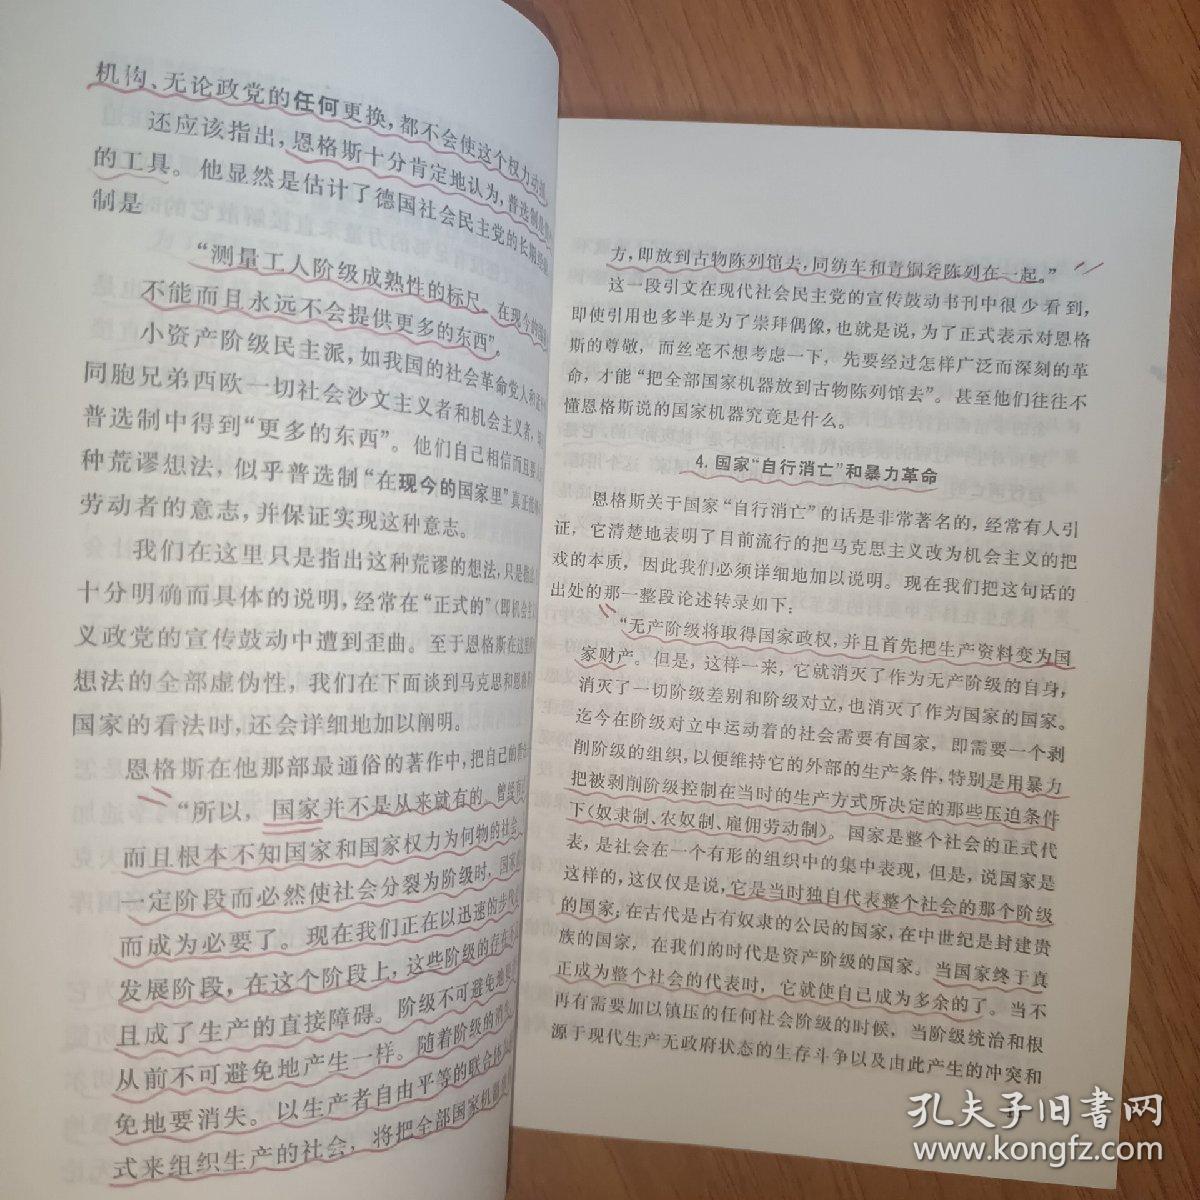 机构、无论政党的任何更换，都不会使这个权力动摇
还应该指出，恩格斯十分肯定地认为，普选制是
的工具。他显然是估计了德国社会民主党的长期
制是
“测量工人阶级成熟性的标尺。在现今的国家
不能而且永远不会提供更多的东西”。
小资产阶级民主派，如我国的社会革命党人和
同胞兄弟西欧一切社会沙文主义者和机会主义者，
普选制中得到“更多的东西”。他们自己相信而且要
种荒谬想法，似乎普选制“在现今的国家里”真正能
劳动者的意志，并保证实现这种意志。
我们在这里只是指出这种荒谬的想法，只是指出
十分明确而具体的说明，经常在“正式的”（即机会主
义政党的宣传鼓动中遭到歪曲。至于恩格斯在这里
想法的全部虚伪性，我们在下面谈到马克思和恩格
国家的看法时，还会详细地加以阐明。
恩格斯在他那部最通俗的著作中，把自己的看法
“所以，国家并不是从来就有的。曾经有
而且根本不知国家和国家权力为何物的社会。
一定阶段而必然使社会分裂为阶级时，国家
而成为必要了。现在我们正在以迅速的步伐
发展阶段，在这个阶段上，这些阶级的存在
且成了生产的直接障碍。阶级不可避免地要
从前不可避免地产生一样。随着阶级的消失，
免地要消失。以生产者自由平等的联合体
式来组织生产的社会，将把全部国家机器
方，即放到古物陈列馆去，同纺车和青铜斧陈列在一起。”
这一段引文在现代社会民主党的宣传鼓动书刊中很少看到，
即使引用也多半是为了崇拜偶像，也就是说，为了正式表示对恩格
斯的尊敬，而丝毫不想考虑一下，先要经过怎样广泛而深刻的革
命，才能“把全部国家机器放到古物陈列馆去”。甚至他们往往不
懂恩格斯说的国家机器究竟是什么。
4. 国家“自行消亡”和暴力革命
恩格斯关于国家“自行消亡”的话是非常著名的，经常有人引
证，它清楚地表明了目前流行的把马克思主义改为机会主义的把
戏的本质，因此我们必须详细地加以说明。现在我们把这句话的
出处的那一整段论述转录如下：
“无产阶级将取得国家政权，并且首先把生产资料变为国
家财产。但是，这样一来，它就消灭了作为无产阶级的自身，
消灭了一切阶级差别和阶级对立，也消灭了作为国家的国家。
迄今在阶级对立中运动着的社会需要有国家，即需要一个剥
削阶级的组织，以便维持它的外部的生产条件，特别是用暴力
把被剥削阶级控制在当时的生产方式所决定的那些压迫条件
下（奴隶制、农奴制、雇佣劳动制）。国家是整个社会的正式代
表，是社会在一个有形的组织中的集中表现，但是，说国家是
这样的，这仅仅是说，它是当时独自代表整个社会的那个阶级
的国家；在古代是占有奴隶的公民的国家，在中世纪是封建贵
族的国家，在我们的时代是资产阶级的国家。当国家终于真
正成为整个社会的代表时，它就使自己成为多余的了。当不
再有需要加以镇压的任何社会阶级的时候，当阶级统治和根
源于现代生产无政府状态的生存斗争以及由此产生的冲突和
孔夫子旧书网
www.kongfz.com